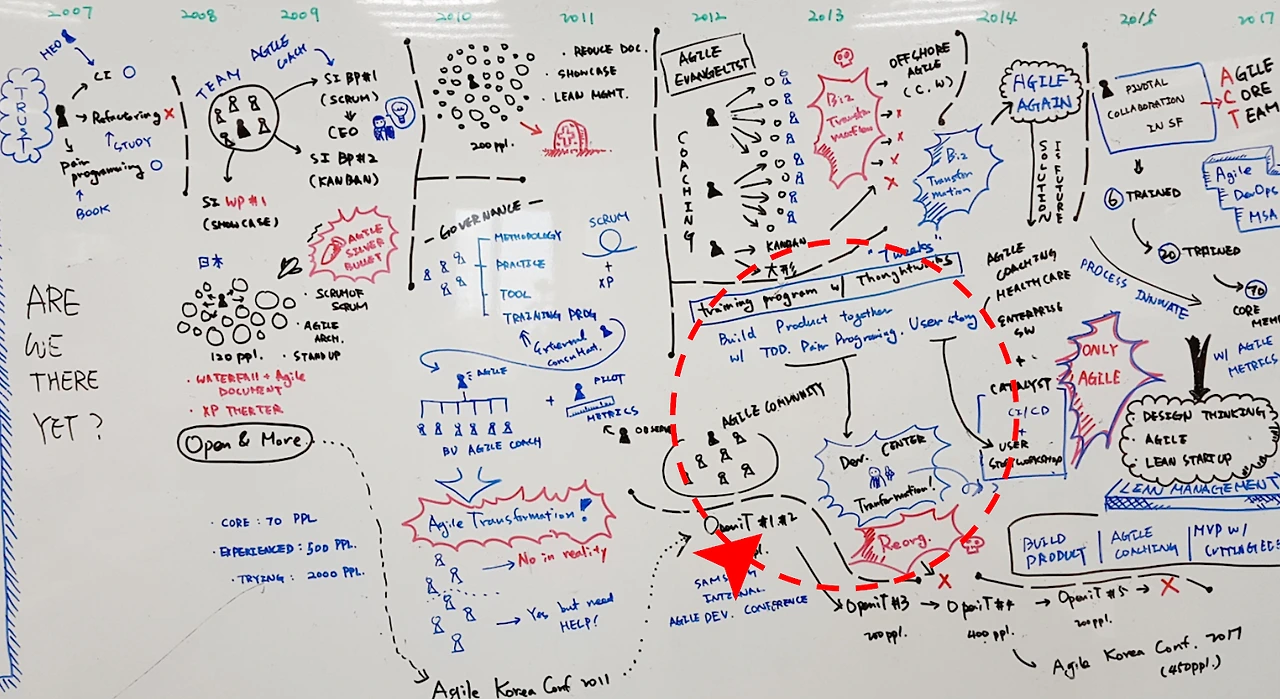 2007
2008
2009
2010
2011
2012
2013
2014
2015
2017
HEO
TRUST
CI
Refactoring X
STUDY
Pair
programing
BOOK
ARE
WE
THERE
YET?
TEAM
AGILE
COACH
SI BP#1
(SCRUM)
CEO
SI BP#2
(KANBAN)
SI WP#1
(SHOWCASE)
AGILE
SILVER
BULLET
日本
120 ppl.
• SCRUM OF
SCRUM
• AGILE
ARCH.
• STAND UP
• WATERFALL + Agile
DOCUMENT
• XP THEATER
Open & More
• CORE : 70 PPL
• EXPERIENCED : 500 PPL.
• TRYING : 2000 PPL.
200 ppl.
• REDUCE DOC.
• SHOWCASE
• LEAN MGMT.
— GOVERNANCE —
METHODOLOGY
PRACTICE
TOOL
TRAINING PROG
SCRUM
+
XP
External
consultant.
AGILE
BU AGILE COACH
+
PILOT
METRICS
OBSERVE
Agile Transformation!
No in reality
Yes but need
HELP!
Agile Korea Conf 2011
AGILE
EVANGELIST
COACHING
KANBAN
Biz
Transfor
mation
X
X
X
X
OFFSHORE
AGILE
(C.W)
Biz
Transfor
mation
"Tweaks"
Training program w/ Thoughtworks
Build Product together
w/ TDD. Pair Programing. User story
AGILE COMMUNITY
Dev. CENTER
Tranformation!
Reorg.
OpeniT #1 #2
SAMSUNG
INTERNAL
AGILE DEV. CONFERENCE
X
OpeniT #3
200 ppl.
OpeniT #4
400 ppl.
OpeniT #5
200 ppl.
X
Agile Korea Conf. 2017
(450ppl.)
AGILE
AGAIN
SOLUTION
IS FUTURE
AGILE
COACHING
HEALTHCARE
ENTERPRISE
SW
+
CATALYST
CI/CD
+
USER
STORY WORKSHOP
ONLY
AGILE
PIVOTAL
COLLABORATION
IN SF
AGILE
CORE
TEAM
6 TRAINED
20 TRAINED
70
CORE MEMB
Agile
DevOps
MSA
PROCESS INNOVATE
W/ AGILE
METRICS
• DESIGN THINKING
• AGILE
• LEAN STARTUP
LEAN MANAGEMENT
BUILD
PRODUCT
AGILE
COACHING
MVP W/
CUTTING EDGE